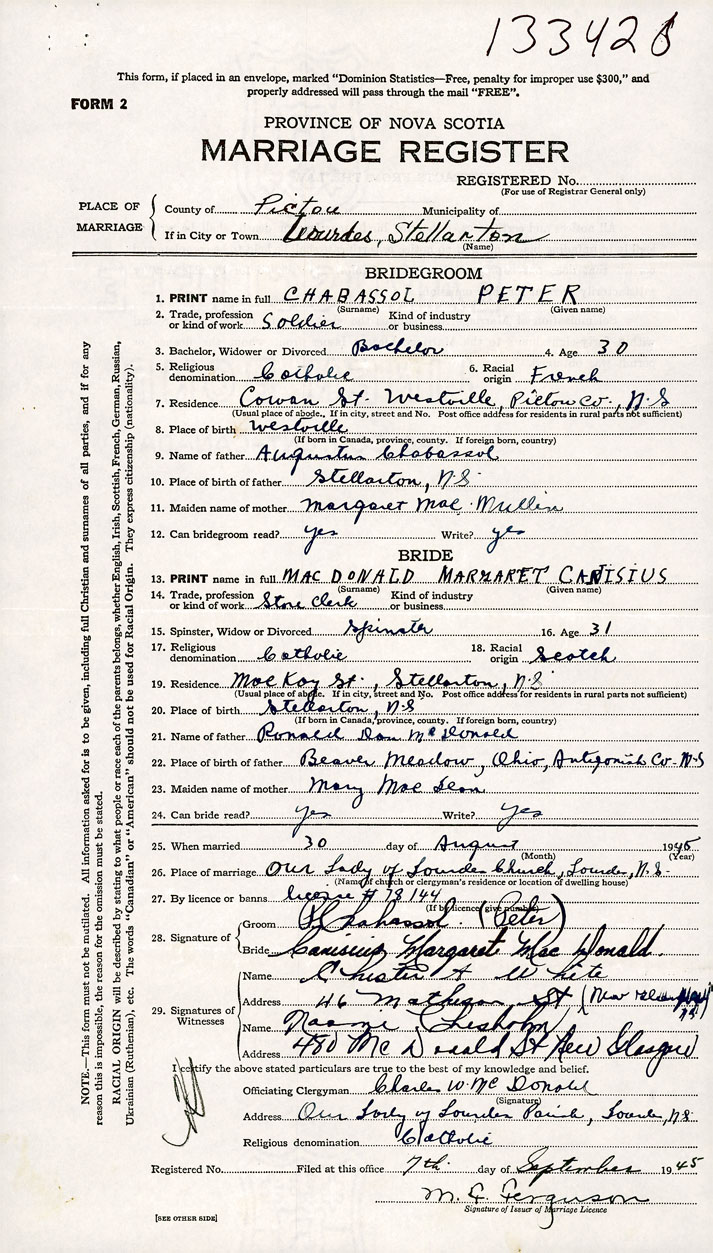 133428
This form, if placed in an envelope, marked "Dominion Statistics—Free, penalty for improper use $300," and
properly addressed will pass through the mail "FREE".
FORM 2
PROVINCE OF NOVA SCOTIA
MARRIAGE REGISTER
REGISTERED No.
(For use of Registrar General only)
PLACE OF MARRIAGE
County of Pictou Municipality of
If in City or Town Lourdes, Stellarton
(Name)
BRIDEGROOM
1. PRINT name in full CHABASSOL PETER
(Surname) (Given name)
2. Trade, profession or kind of work Soldier Kind of industry or business
3. Bachelor, Widower or Divorced Bachelor 4. Age 30
5. Religious denomination Catholic 6. Racial origin French
7. Residence Cowan St. Westville, Pictou Co., N.S
(Usual place of abode. If in city, street and No. Post office address for residents in rural parts not sufficient)
8. Place of birth Westville
(If born in Canada, province, county. If foreign born, country)
9. Name of father Augustus Chabassol
10. Place of birth of father Stellarton, N.S.
11. Maiden name of mother Margaret Mac Mullin
12. Can bridegroom read? yes Write? yes
BRIDE
13. PRINT name in full MAC DONALD MARGARET CANISIUS
(Surname) (Given name)
14. Trade, profession or kind of work Store Clerk Kind of industry or business
15. Spinster, Widow or Divorced Spinster 16. Age 31
17. Religious denomination Catholic 18. Racial origin Scotch
19. Residence MacKay St., Stellarton, N.S
(Usual place of abode. If in city, street and No. Post office address for residents in rural parts not sufficient)
20. Place of birth Stellarton, N.S
(If born in Canada, province, county. If foreign born, country)
21. Name of father Ronald Dan McDonald
22. Place of birth of father Beaver Meadow, Ohio, Antigonish Co. N.S
23. Maiden name of mother Mary Mac Lean
24. Can bride read? yes Write? yes
25. When married 30 day of August 1945
(Month) (Year)
26. Place of marriage Our Lady of Lourdes Church, Lourdes, N.S.
(Name of church or clergyman's residence or location of dwelling house)
27. By licence or banns license # 78144
(If by licence give number)
28. Signature of
Groom P Chabassol. (Peter)
Bride Canisius Margaret Mac Donald.
29. Signatures of Witnesses
Name Chester A White
Address 46 St (New
Name Naomi Chisholm
Address 480 McDonald St New Glasgow
I certify the above stated particulars are true to the best of my knowledge and belief.
Officiating Clergyman Charles W. McDonald
(Signature)
Address Our Lady of Lourdes Parish, Lourdes, N.S.
Religious denomination Catholic
Registered No. Filed at this office 7th day of September 1945
M. Ferguson
Signature of Issuer of Marriage Licence
[SEE OTHER SIDE]
NOTE.—This form must not be mutilated. All information asked for is to be given, including full Christian and surnames of all parties, and if for any
reason this is impossible, the reason for the omission must be stated.
RACIAL ORIGIN will be described by stating to what people or race each of the parents belongs, whether English, Irish, Scottish, French, German, Russian,
Ukrainian (Ruthenian), etc. The words "Canadian" or "American" should not be used for Racial Origin. They express citizenship (nationality).